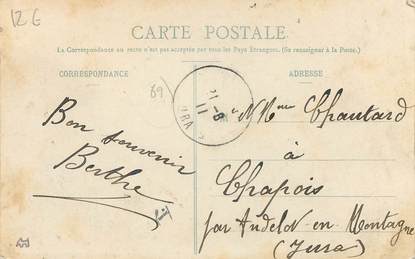 RG
CARTE POSTALE.
La Correspondance au recto n'est pas acceptée par tous les Pays Étrangers. (Se renseigner à la Poste.)
CORRESPONDANCE
ADRESSE
Bon souvenir
Berthe
21-8
11
Chautard
à
Chapois
par Andelot-en-Montagne
(Jura)